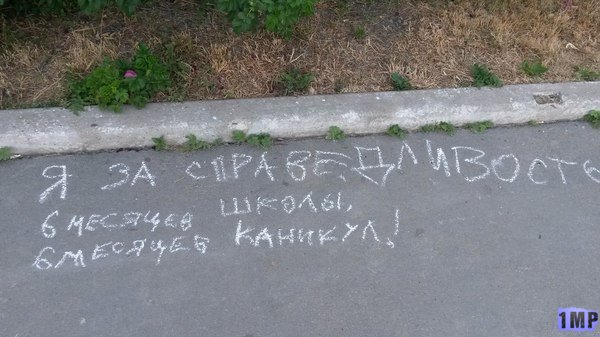 Я ЗА СПРАВЕДЛИВОСТЬ
6 МЕСЯЦЕВ ШКОЛЫ,
6 МЕСЯЦЕВ КАНИКУЛ!
1MP